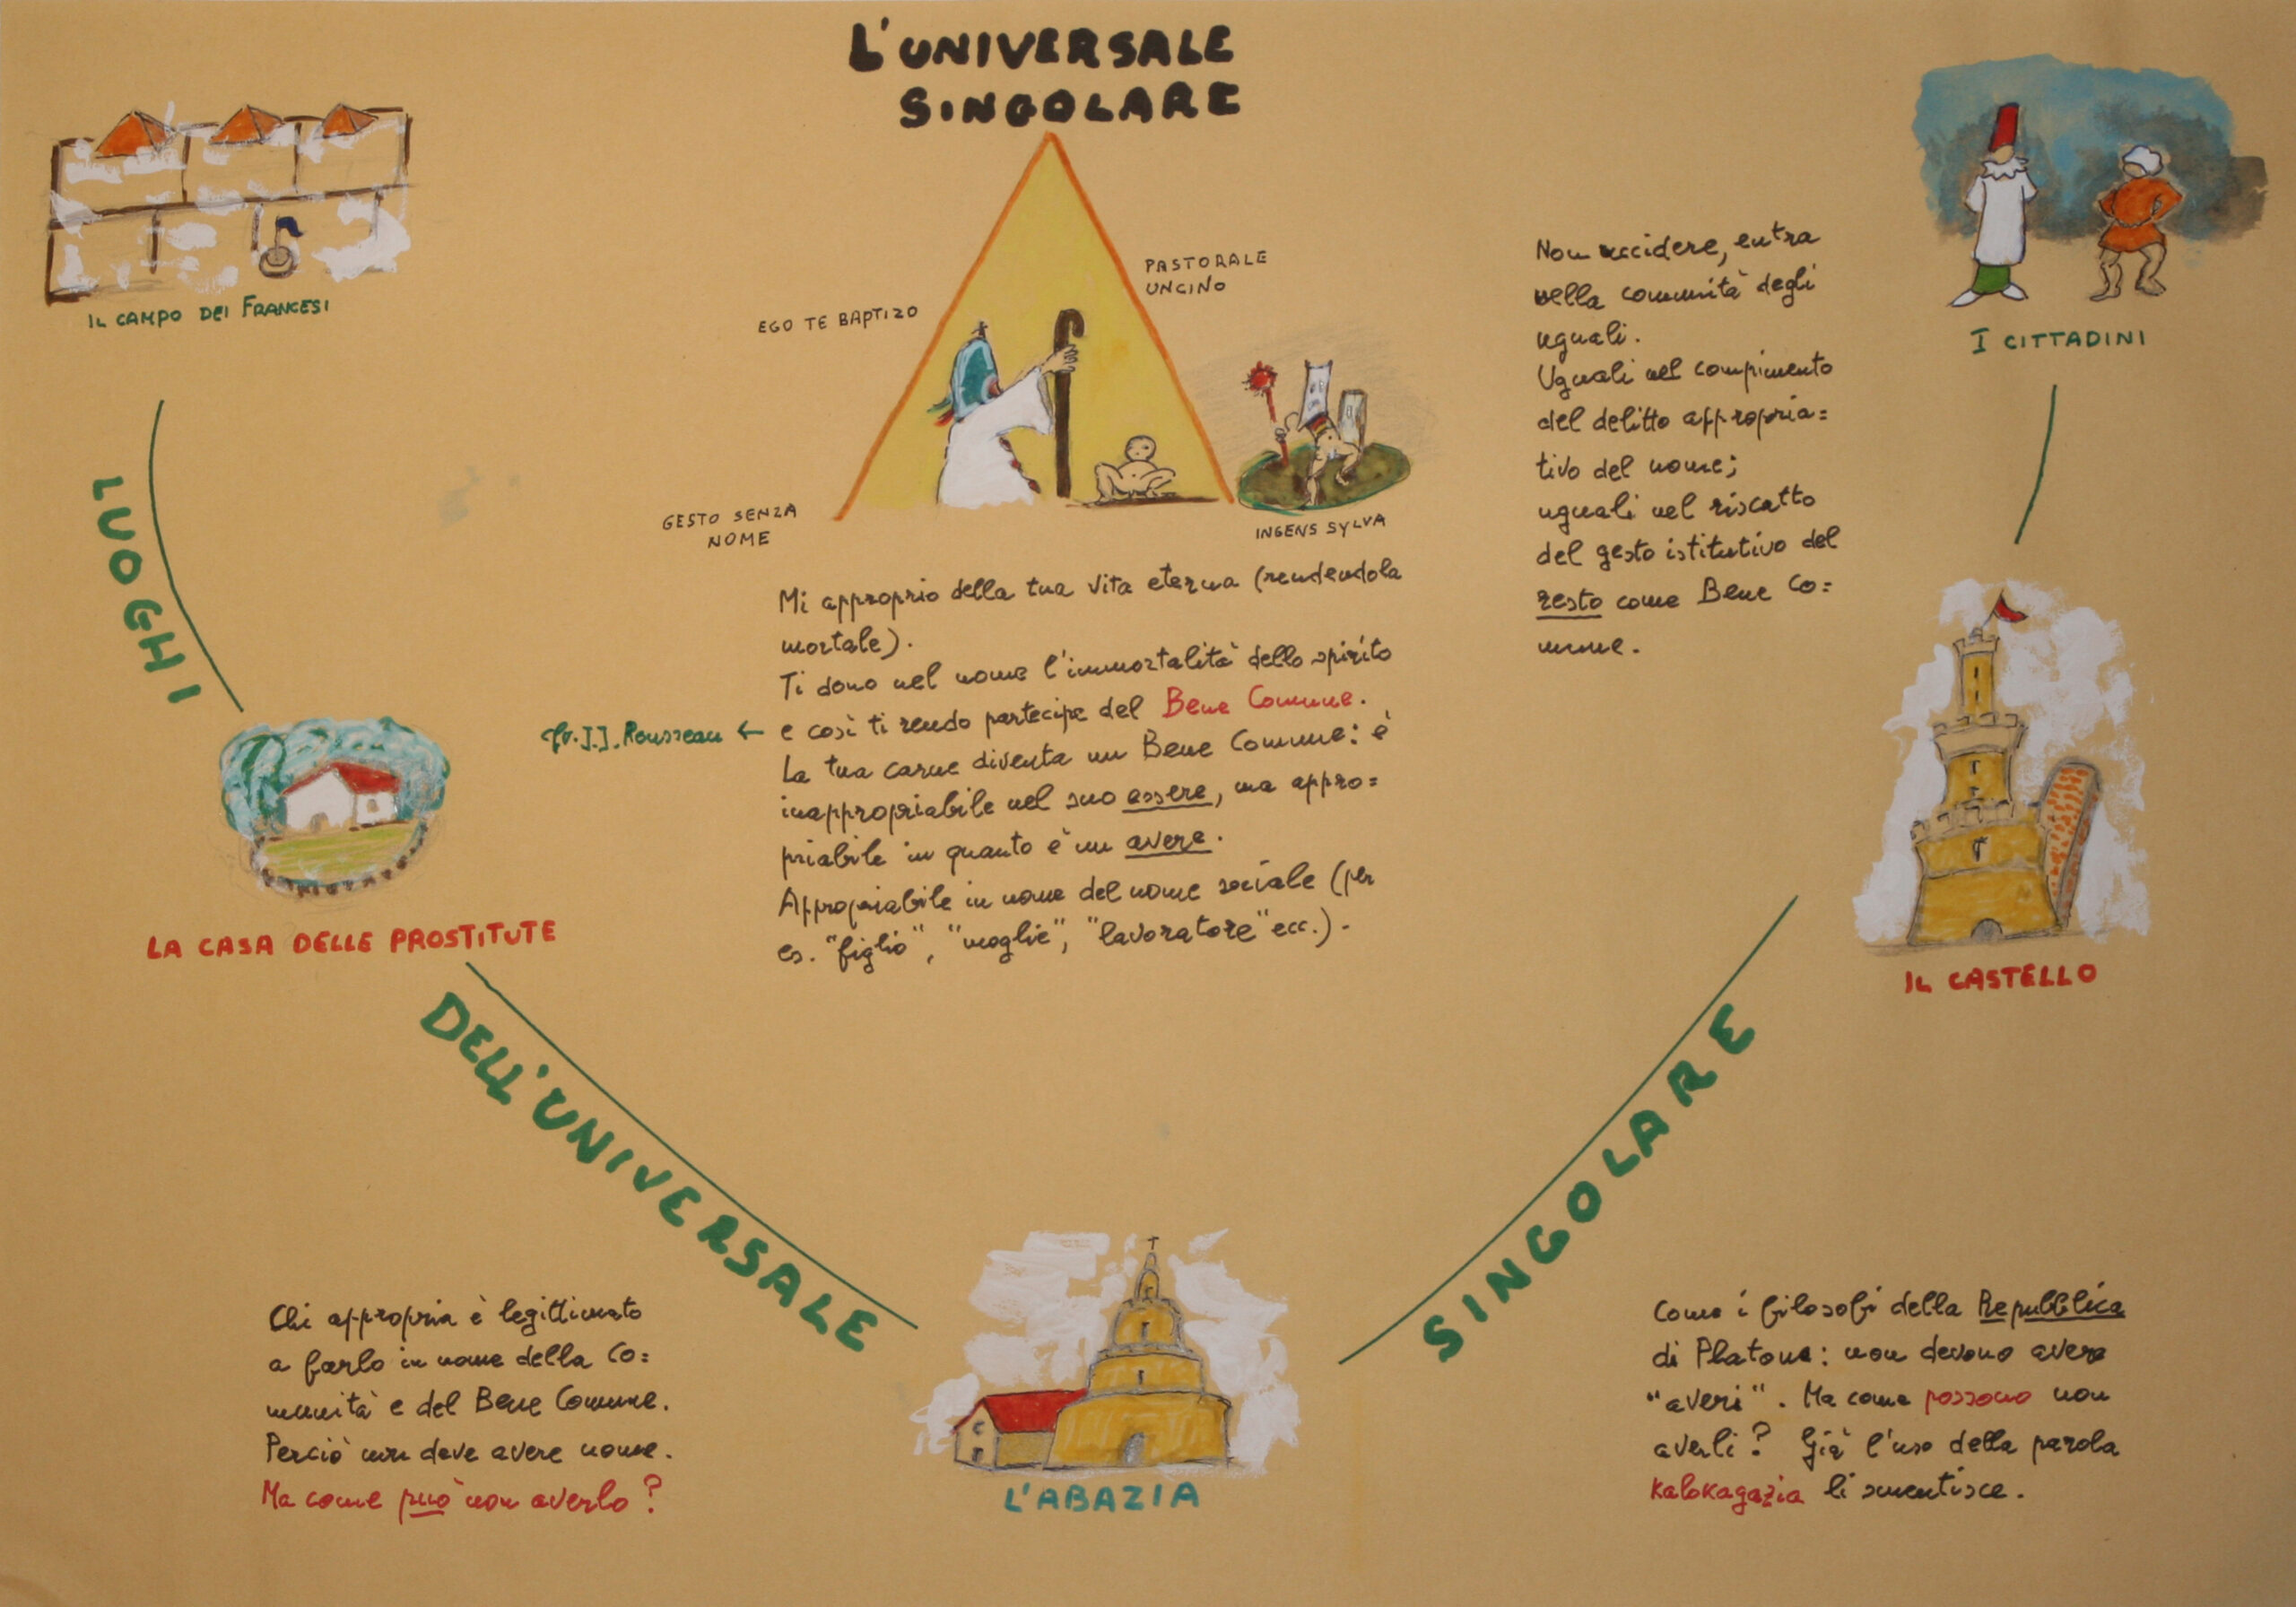 L'UNIVERSALE
SINGOLARE
IL CAMPO DEI FRANCESI
EGO TE BAPTIZO
PASTORALE
UNCINO
GESTO SENZA
NOME
INGENS SYLVA
I CITTADINI
Non uccidere, entra
nella comunità degli
uguali.
Uguali nel compimento
del delitto appropria=
tivo del nome;
uguali nel riscatto
del gesto istitutivo del
resto come Bene Co=
mune.
LUOGHI
Mi approprio della tua vita eterna (rendendola
mortale).
Ti dono nel nome l'immortalità dello spirito
e così ti rendo partecipe del Bene Comune.
La tua carne diventa un Bene Comune: è
inappropriabile nel suo essere, ma appro=
priabile in quanto è un avere.
Appropriabile in nome del nome sociale (per
es. "figlio", "moglie", "lavoratore" ecc.).
Cfr. J.J. Rousseau ←
LA CASA DELLE PROSTITUTE
IL CASTELLO
DELL'UNIVERSALE
SINGOLARE
L'ABAZIA
Chi appropria è legittimato
a farlo in nome della Co=
munità e del Bene Comune.
Perciò non deve avere nome.
Ma come può non averlo?
Come i filosofi della Repubblica
di Platone: non devono avere
"averi". Ma come possono non
averli? Già l'uso della parola
kalokagazia li smentisce.